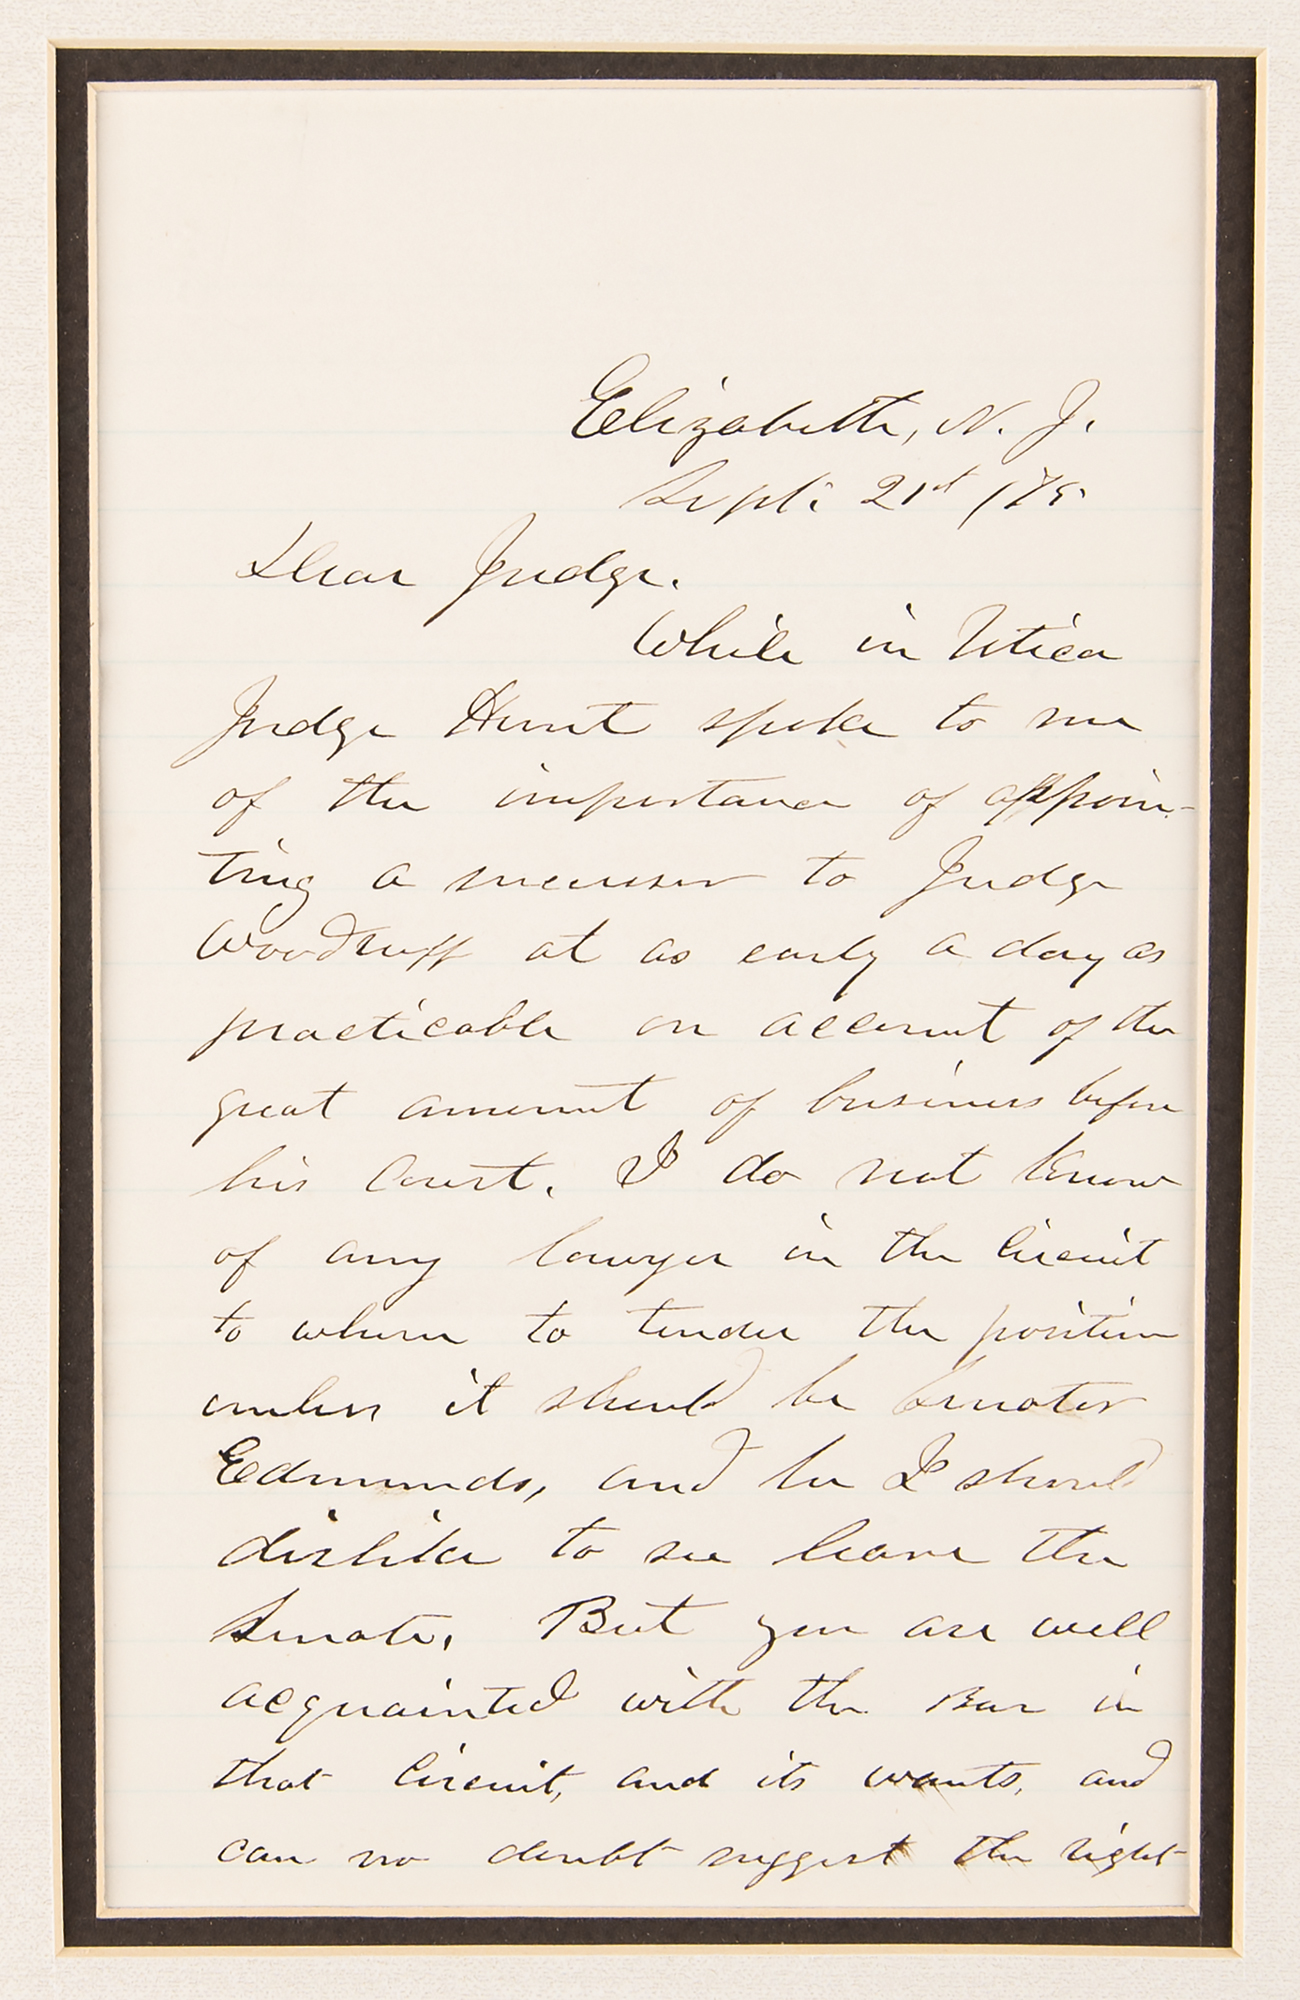 Elizabeth, N. J.
Sept. 21st /75
Dear Judge.
While in Utica
Judge Hunt spoke to me
of the importance of appoin-
ting a successor to Judge
Woodruff at as early a day as
practicable on account of the
great amount of business before
his Court. I do not know
of any lawyer in the Circuit
to whom to tender the position
unless it should be Senator
Edmunds, and he I should
dislike to see leave the
Senate. But you are well
acquainted with the Bar in
that Circuit, and its wants, and
can no doubt suggest the right